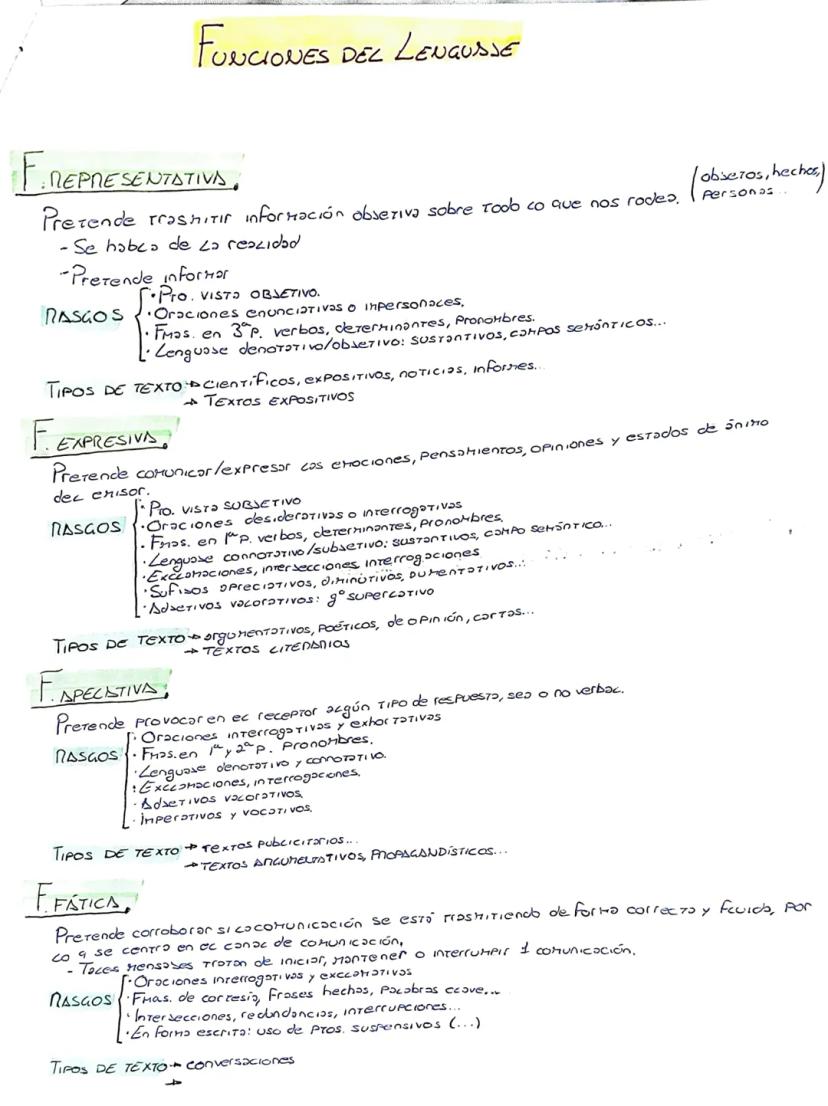 FUNCIONES DEL LENGUAJE
F. REPRESENTATIVA.
Pretende trasmitir información objetiva sobre todo lo que nos rodea. (objetos, hechos, personas...)
- Se habla de la realidad
- Pretende informar
RASGOS
· Pto. vista OBJETIVO.
· Oraciones enunciativas o impersonales.
· Fmas. en 3ª p. verbos, determinantes, pronombres.
· Lenguaje denotativo/objetivo: sustantivos, campos semánticos...
TIPOS DE TEXTO → científicos, expositivos, noticias, informes...
→ TEXTOS EXPOSITIVOS
F. EXPRESIVA.
Pretende comunicar/expresar las emociones, pensamientos, opiniones y estados de ánimo
del emisor.
RASGOS
· Pto. vista SUBJETIVO
· Oraciones desiderativas o interrogativas
· Fmas. en 1ª p. verbos, determinantes, pronombres.
· Lenguaje connotativo/subjetivo: sustantivos, campo semántico...
· Exclamaciones, intersecciones, interrogaciones
· Sufijos apreciativos, diminutivos, aumentativos...
· Adjetivos valorativos: gº superlativo
TIPOS DE TEXTO → argumentativos, poéticos, de opinión, cartas...
→ TEXTOS LITERARIOS
F. APELATIVA.
Pretende provocar en el receptor algún tipo de respuesta, sea o no verbal.
RASGOS
· Oraciones interrogativas y exhortativas
· Fmas. en 1ª y 2ª p. Pronombres.
· Lenguaje denotativo y connotativo.
· Exclamaciones, interrogaciones.
· Adjetivos valorativos.
· Imperativos y vocativos.
TIPOS DE TEXTO → Textos publicitarios...
→ TEXTOS ARGUMENTATIVOS, PROPAGANDÍSTICOS...
F. FÁTICA.
Pretende corroborar si la comunicación se está trasmitiendo de forma correcta y fluida, por
lo q se centra en el canal de comunicación.
- Tales mensajes tratan de iniciar, mantener o interrumpir 1 comunicación.
RASGOS
· Oraciones interrogativas y exclamativas
· Fmas. de cortesía, Frases hechas, Palabras clave...
· Intersecciones, redundancias, interrupciones...
· En forma escrita: uso de ptos. suspensivos (...)
TIPOS DE TEXTO → conversaciones
→